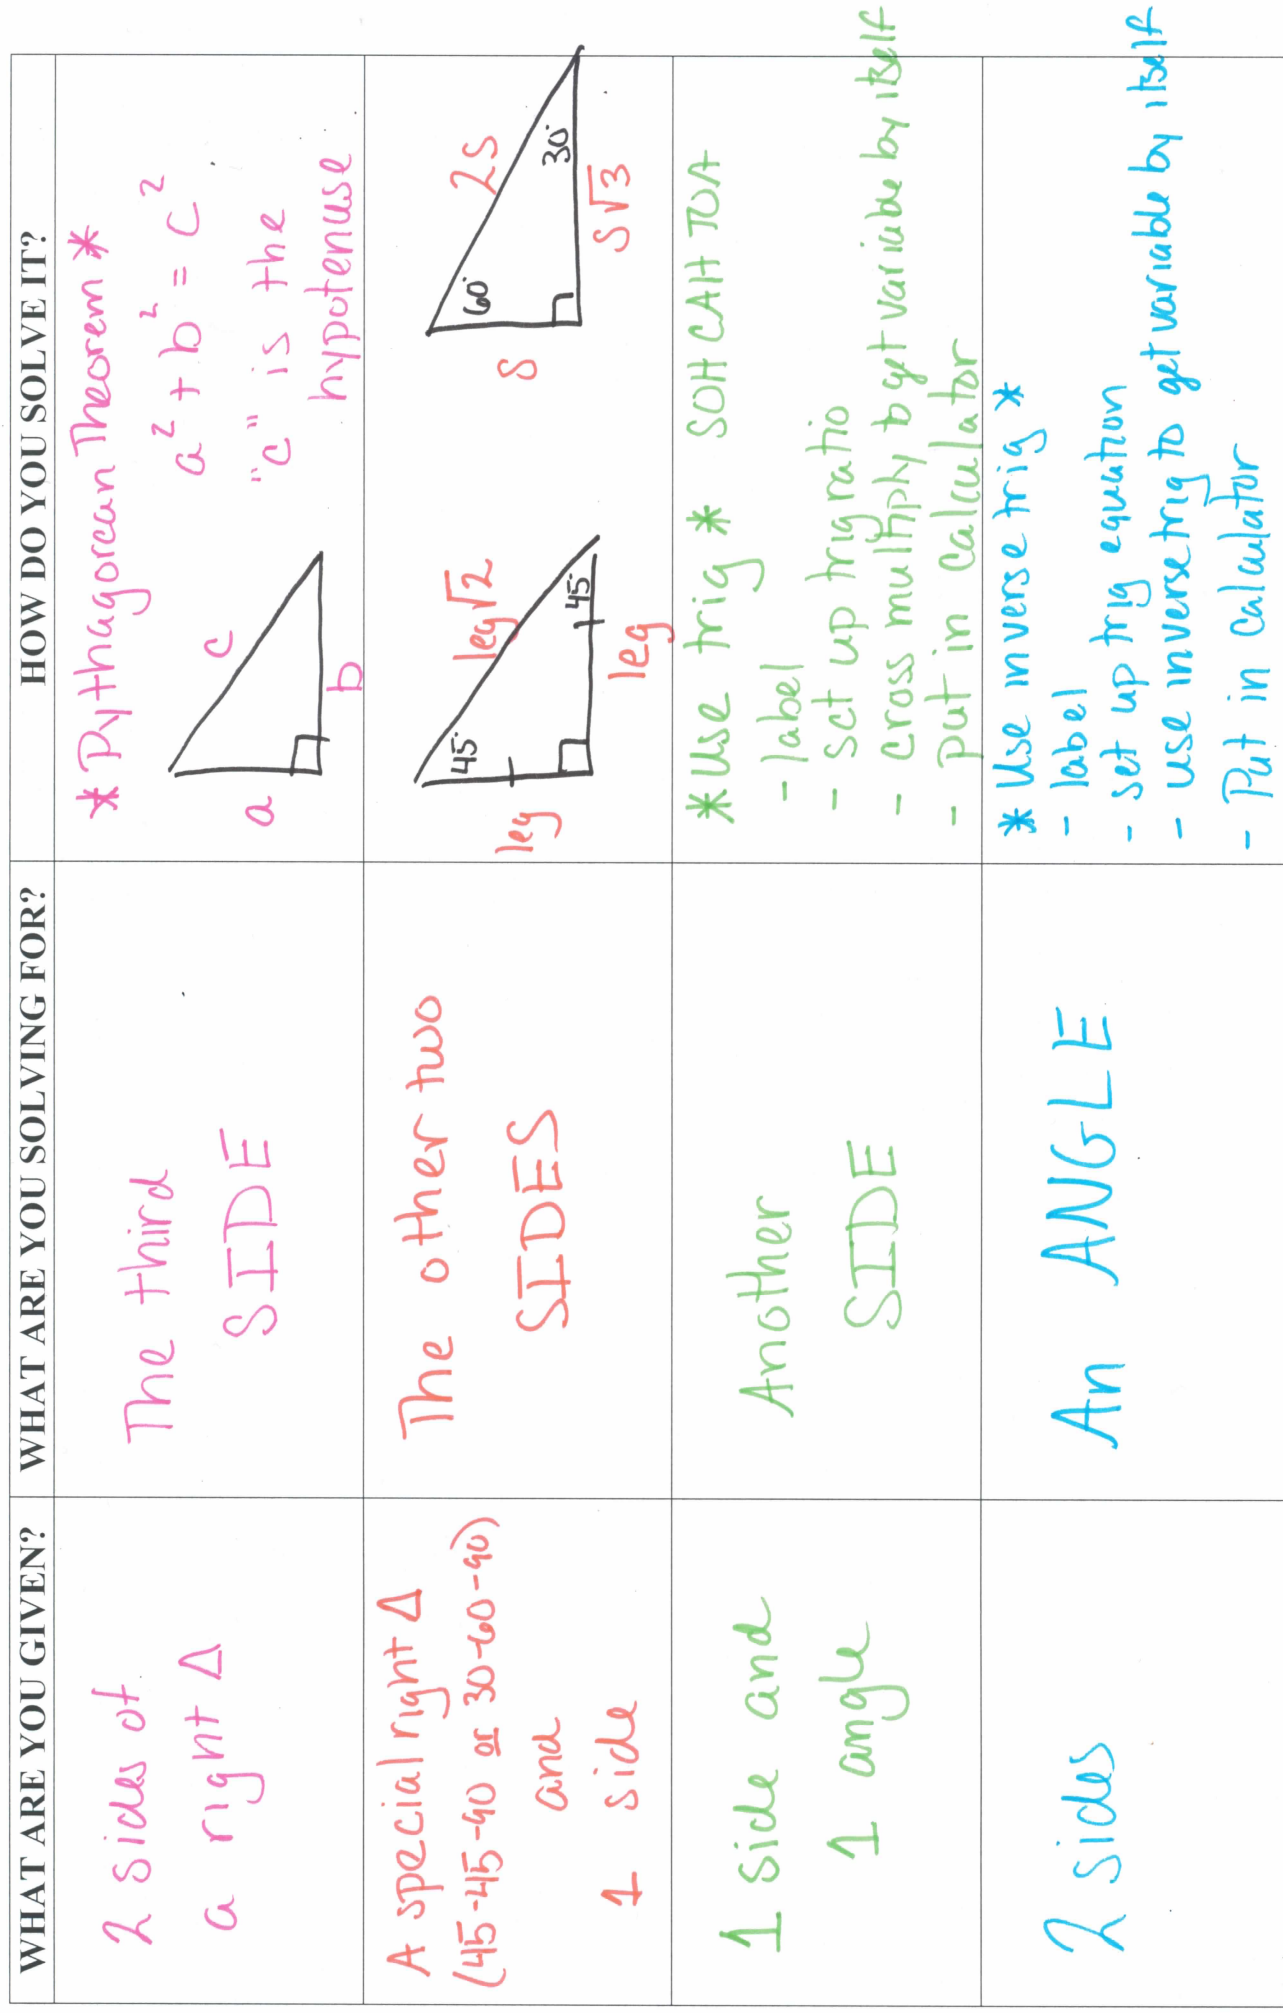 WHAT ARE YOU GIVEN?
WHAT ARE YOU SOLVING FOR?
HOW DO YOU SOLVE IT?
2 sides of
a right Δ
The third
SIDE
* Pythagorean Theorem *
a
c
b
a² + b² = c²
"c" is the
hypotenuse
A special right Δ
(45-45-90 or 30-60-90)
and
1 side
The other two
SIDES
leg
45°
leg√2
45°
leg
s
60°
2s
30°
s√3
1 side and
1 angle
Another
SIDE
* Use trig * SOH CAH TOA
- label
- set up trig ratio
- cross multiply to get variable by itself
- put in calculator
2 sides
An ANGLE
* Use inverse trig *
- label
- set up trig equation
- use inverse trig to get variable by itself
- Put in calculator